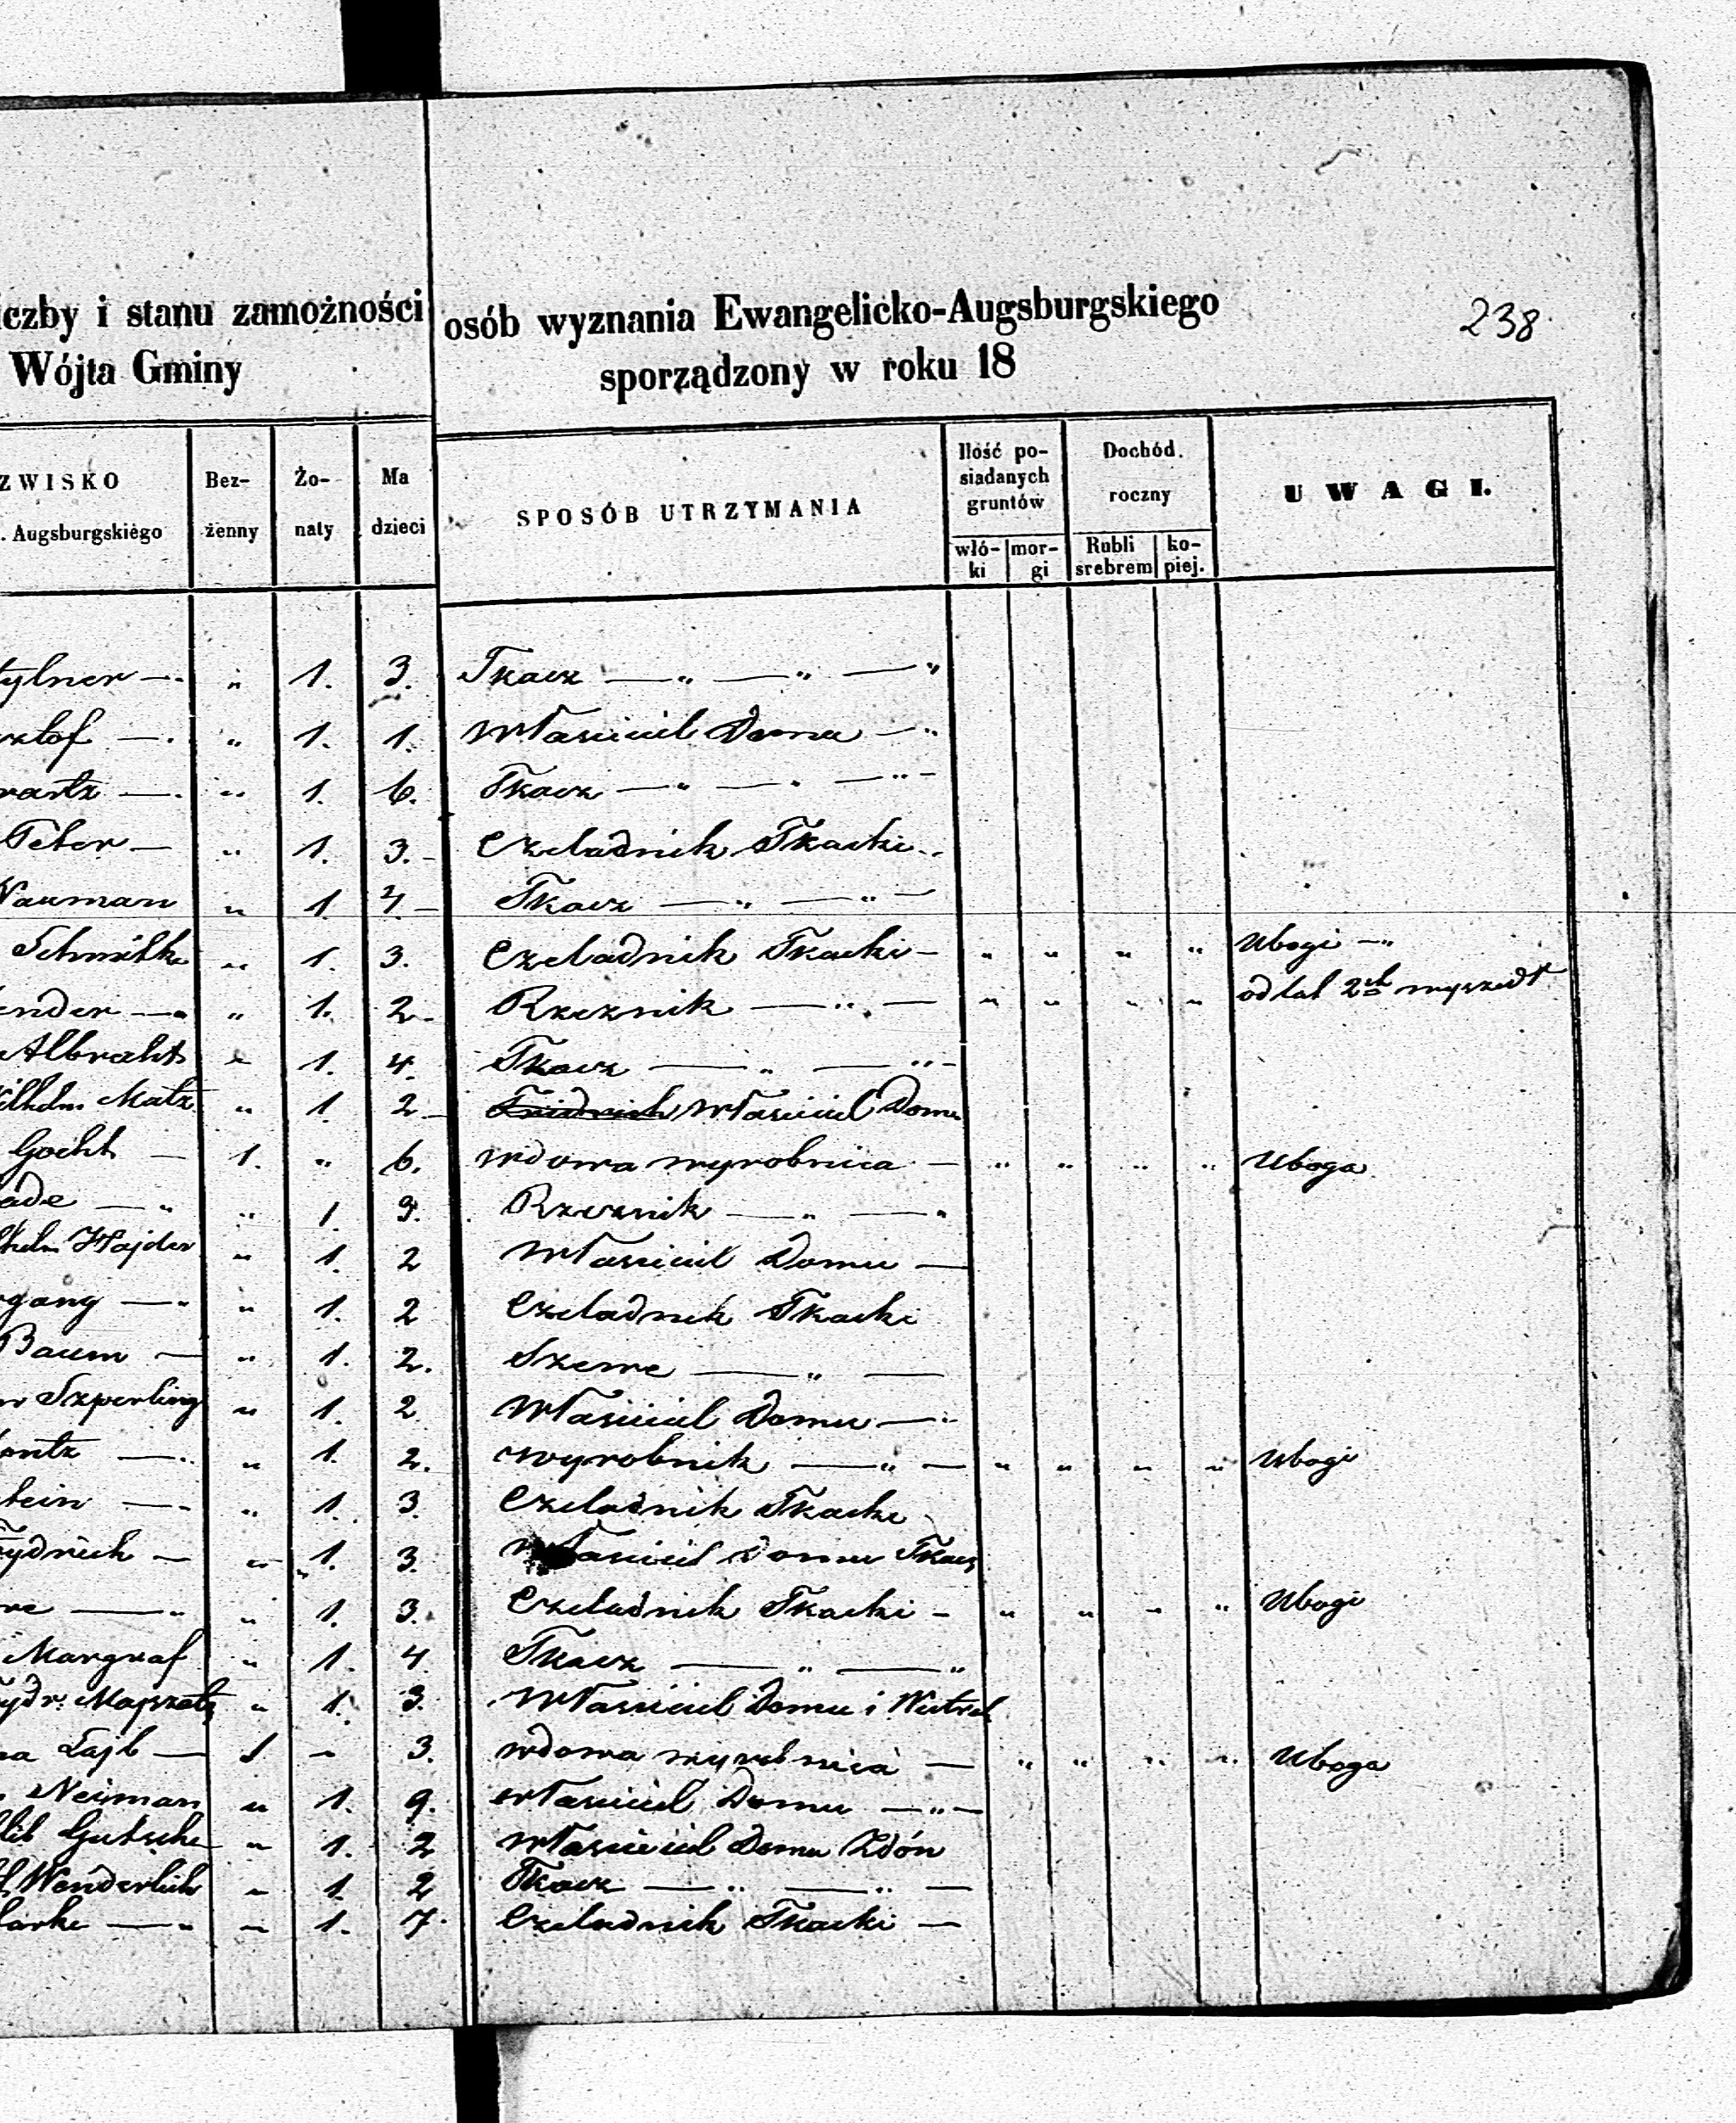 iczby i stanu zamożności osób wyznania Ewangelicko-Augsburgskiego 238
Wójta Gminy sporządzony w roku 18
ZWISKO
. Augsburgskiego
Bez-
żenny
Żo-
naty
Ma
dzieci
SPOSÓB UTRZYMANIA
Ilość po-
siadanych
gruntów
włó-
ki
mor-
gi
Dochód
roczny
Rubli
srebrem
ko-
piej.
UWAGI.
tylner — „ 1. 3. Tkacz — „ — „ — „
sztof — „ 1. 1. Właściciel Domu — „
wartz — „ 1. 6. Tkacz — „ — „ — „ —
Peter — „ 1. 3. Czeladnik Tkacki „
Nauman „ 1. 4. Tkacz — „ — „ —
Schmilke „ 1. 3. Czeladnik Tkacki — „ „ „ „ Ubogi — „
ender — „ 1. 2. Rzeznik — „ — „ „ „ „ od lat 2ch wyszedł
Albraht „ 1. 4. Tkacz — „ — „ —
ilhelm Matz „ 1 2 Fridrich Właściciel Domu
Gocht — 1. „ 6. wdowa wyrobnica — „ „ „ „ Uboga
ade — „ „ 1. 3. Rzeznik — „ — „
lhelm Hajder „ 1. 2 Właściciel Domu —
rgang — „ „ 1. 2 Czeladnik Tkacki
Baum — „ 1. 2. Szewc — „ —
Szperling „ 1. 2 Właściciel Domu — „
antz — „ „ 1. 2. wyrobnik — „ — „ „ „ „ Ubogi
tein — „ 1. 3. Czeladnik Tkacki
rydrich — „ 1. 3. Właściciel Domu Tkacz
re — „ „ 1. 3. Czeladnik Tkacki — „ „ „ „ Ubogi
Margraf „ 1. 4. Tkacz — „ — „
rydr. Majszatz „ 1. 3. Właściciel Domu i
na Lajb — 1. „ 3. wdowa wyrobnica — „ „ „ „ Uboga
Neiman „ 1. 9. Właściciel Domu — „ —
lib Gutsche „ 1. 2 Właściciel Domu Zdón
Wenderlich „ 1. 2 Tkacz — „ — „ —
larke — „ „ 1. 7. Czeladnik Tkacki —